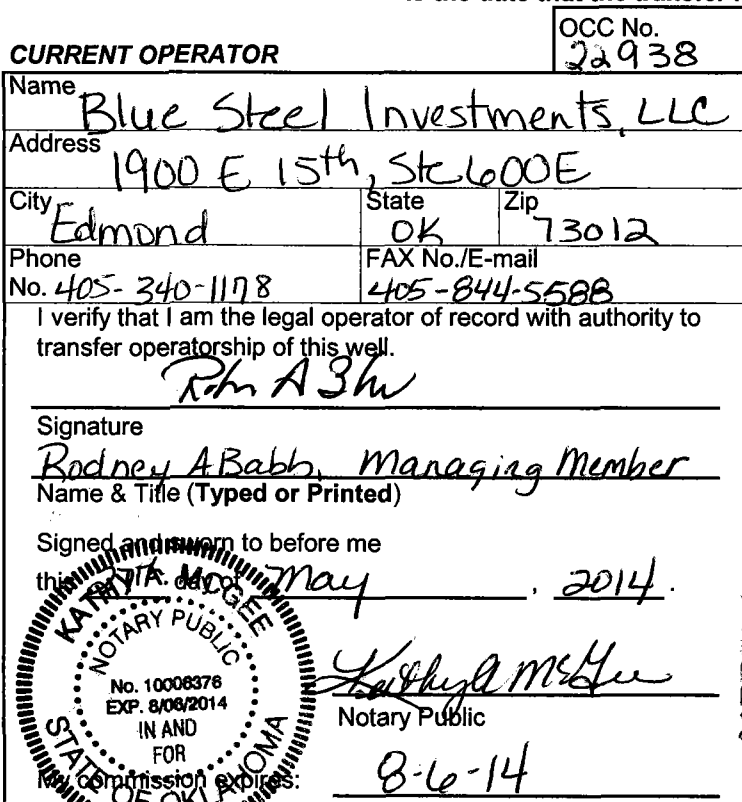 is the date that the transfer
OCC No.
CURRENT OPERATOR
22938
Name
Blue Steel Investments, LLC
Address
1900 E 15th, Ste 600E
City
State
Zip
Edmond
OK
73012
Phone
FAX No./E-mail
No. 405-340-1178
405-844-5588
I verify that I am the legal operator of record with authority to
transfer operatorship of this well.
Signature
Rodney A Babb, Managing Member
Name & Title (Typed or Printed)
Signed and sworn to before me
this day of May, 2014.
KATHY A. MCGEE
NOTARY PUBLIC
No. 10006376
EXP. 8/06/2014
IN AND
FOR
STATE OF OKLAHOMA
Kathy A McGee
Notary Public
My commission expires:
8-6-14